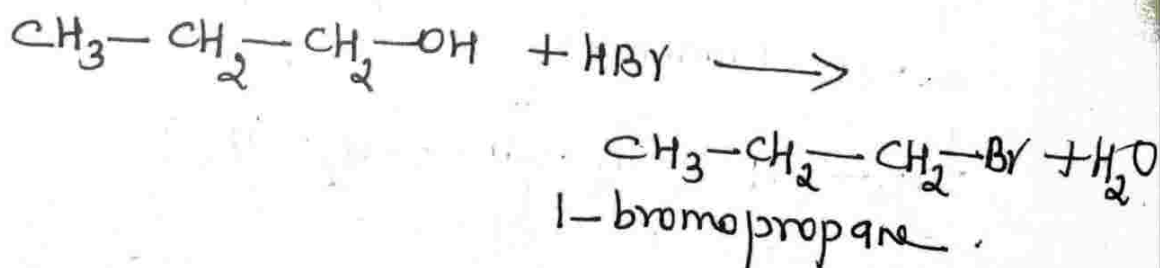 CH₃—CH₂—CH₂—OH + HBr ⟶
CH₃—CH₂—CH₂—Br + H₂O
1-bromopropane.